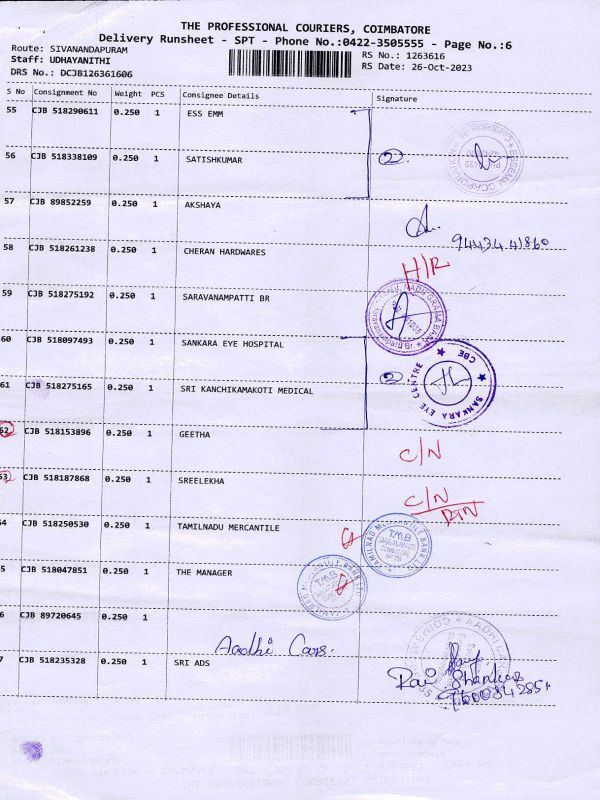 THE PROFESSIONAL COURIERS, COIMBATORE
Delivery Runsheet - SPT - Phone No.:0422-3505555 - Page No.:6
Route: SIVANANDAPURAM
RS No.: 1263616
Staff: UDHAYANITHI
RS Date: 26-Oct-2023
DRS No.: DCJB126361606
S No Consignment No Weight PCS Consignee Details Signature
55 CJB 518290611 0.250 1 ESS EMM
56 CJB 518338109 0.250 1 SATISHKUMAR 2
57 CJB 89852259 0.250 1 AKSHAYA
94434 41860
58 CJB 518261238 0.250 1 CHERAN HARDWARES H/R
59 CJB 518275192 0.250 1 SARAVANAMPATTI BR
60 CJB 518097493 0.250 1 SANKARA EYE HOSPITAL
61 CJB 518275165 0.250 1 SRI KANCHIKAMAKOTI MEDICAL 2
SANKARA EYE CENTRE CBE
62 CJB 518153896 0.250 1 GEETHA C/N
53 CJB 518187868 0.250 1 SREELEKHA C/N
RTN
54 CJB 518250530 0.250 1 TAMILNADU MERCANTILE
TMB
5 CJB 518047851 0.250 1 THE MANAGER
TMB
6 CJB 89720645 0.250 1
Aadhi Cars.
7 CJB 518235328 0.250 1 SRI ADS
Ravi Shankar